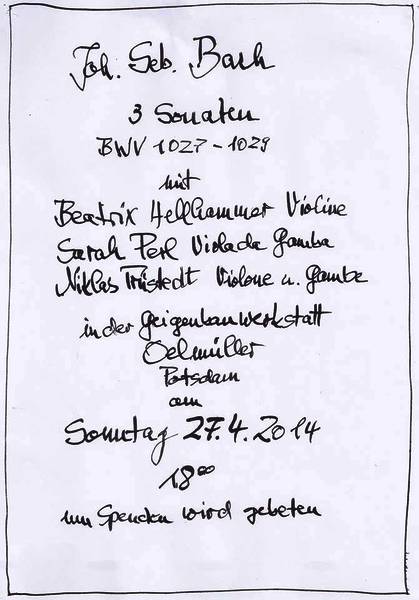 Joh. Seb. Bach
3 Sonaten
BWV 1027-1029
mit
Beatrix Hellhammer Violine
Sarah Perl Violada Gamba
Niklas Trüstedt Violone u. Gambe
in der Geigenbauwerkstatt
Oelmüller
Potsdam
am
Sonntag 27.4.2014
18°°
um Spenden wird gebeten